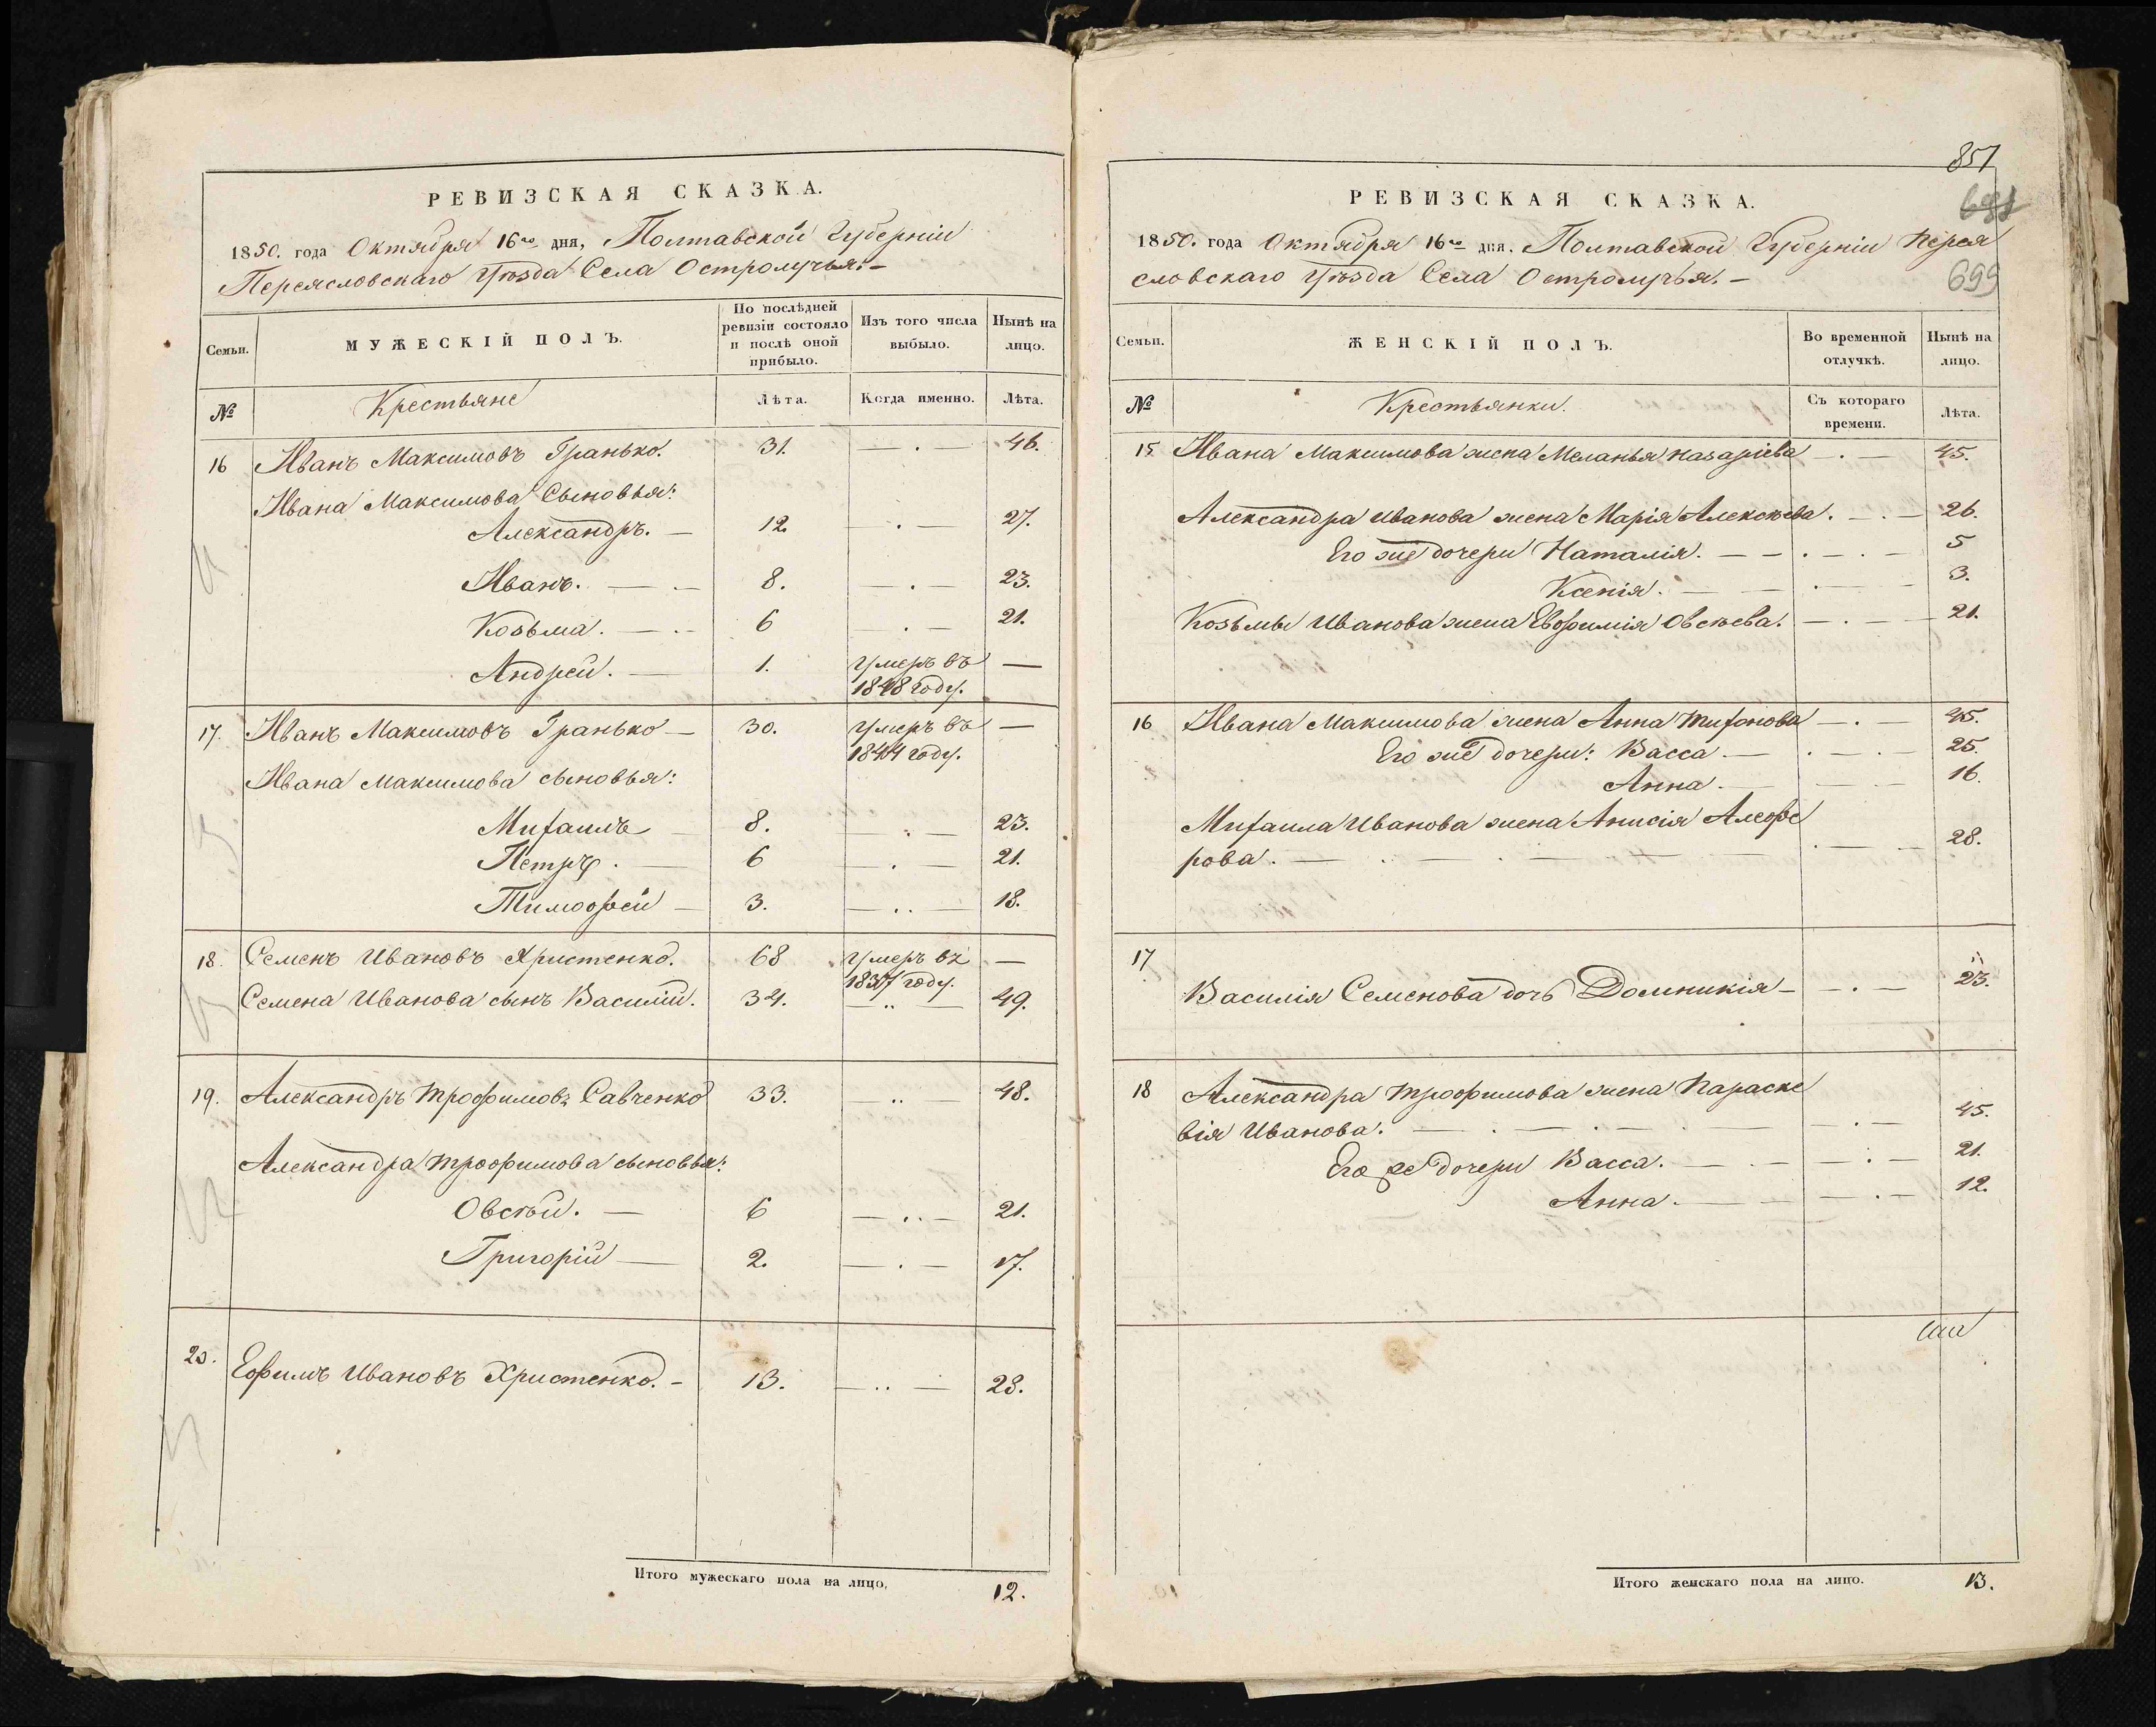 РЕВИЗСКАЯ СКАЗКА.
1850. года Октября 16го дня, Полтавской Губерніи
Переясловскаго Уѣзда Села Остролучья.-
Семьи.
МУЖЕСКІЙ ПОЛЪ.
По послѣдней ревизіи состояло и послѣ оной прибыло.
Изъ того числа выбыло.
Нынѣ на лицо.
№ Крестьяне Лѣта. Когда именно. Лѣта.
16 Иванъ Максимовъ Гранько. 31. — . — 46.
Ивана Максимова Сыновья:
Александръ. — 12. . — 27.
Иванъ. — — 8. — . 23.
Козьма. — .. 6 . — 21.
Андрей. — 1. умеръ въ —
1848 году.
17. Иванъ Максимовъ Гранько — 30. умеръ въ —
1844 году.
Ивана Максимова сыновья:
Михаилъ — 8. . — 23.
Петръ. — 6 — . — 21.
Тимофей — 3. — .. — 18.
18. Семенъ Ивановъ Христенко. 68 умеръ въ —
1837 году.
Семена Иванова сынъ Василій. 34. — .. — 49.
19. Александръ Трофимовъ Савченко 33. — .. — 48.
Александра Трофимова сыновья:
Овсѣй. — 6 — .. — 21.
Григорій — 2. — . — 17.
20. Ефимъ Ивановъ Христенко. - 13. — .. — 28.
Итого мужескаго пола на лицо, 12.
851
699
РЕВИЗСКАЯ СКАЗКА.
1850. года Октября 16го дня. Полтавской Губерніи Перея
словскаго Уѣзда Села Остролучья. -
Семьи.
ЖЕНСКІЙ ПОЛЪ.
Во временной отлучкѣ.
Нынѣ на лицо.
№ Крестьянки. Съ котораго времени. Лѣта.
15 Ивана Максимова жена Меланья Назаріева — . — 45.
Александра Иванова жена Марія Алексѣева. — . — 26.
Его же дочери Наталія. — — . — . — 5
Ксенія. — — . — — 3.
Козьмы Иванова жена Евфимія Овсѣева. — . — — 21.
16 Ивана Максимова жена Анна Тихонова — . — 45.
Его же дочери: Васса — . — . — 25.
Анна. — — . — 16.
Михаила Иванова жена Анисія Алефе
рова. — . — . — — . — — 28.
17
Василія Семенова дочь Домникія — — . — 23.
18 Александра Трофимова жена Параске
вія Иванова. — . — . — . — . — 45.
Его же дочери Васса. — . — . — 21.
Анна. — — — . — 12.
Итого женскаго пола на лицо. 13.